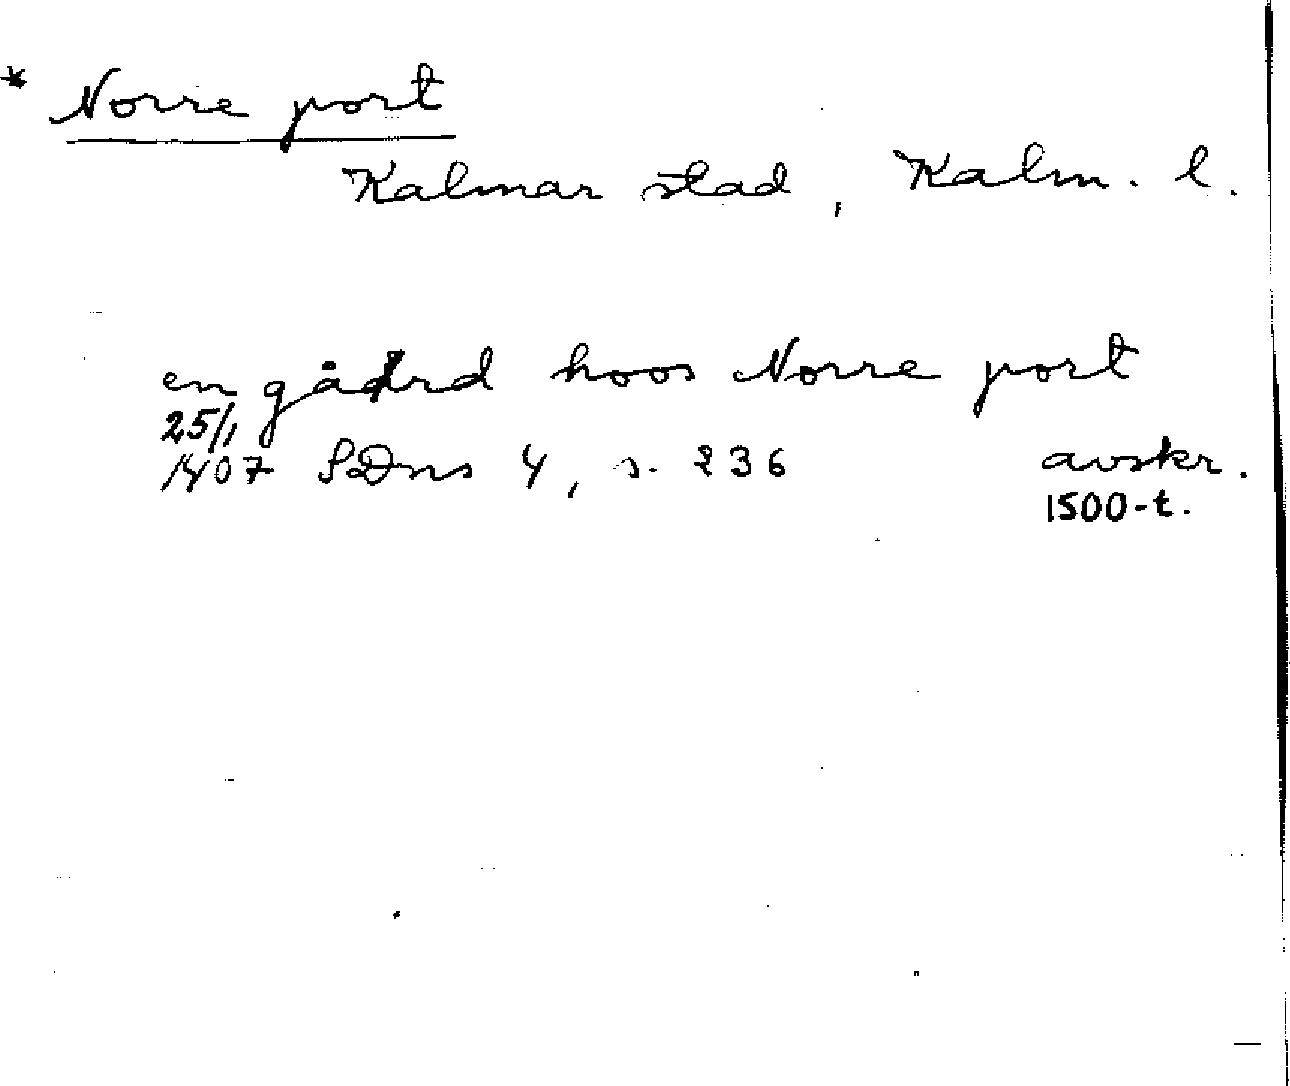 * Norre port
Kalmar stad, Kalm. l.
en gådrd hoos Norre port
25/1
1407 SDns 4, s. 236 avskr.
1500-t.